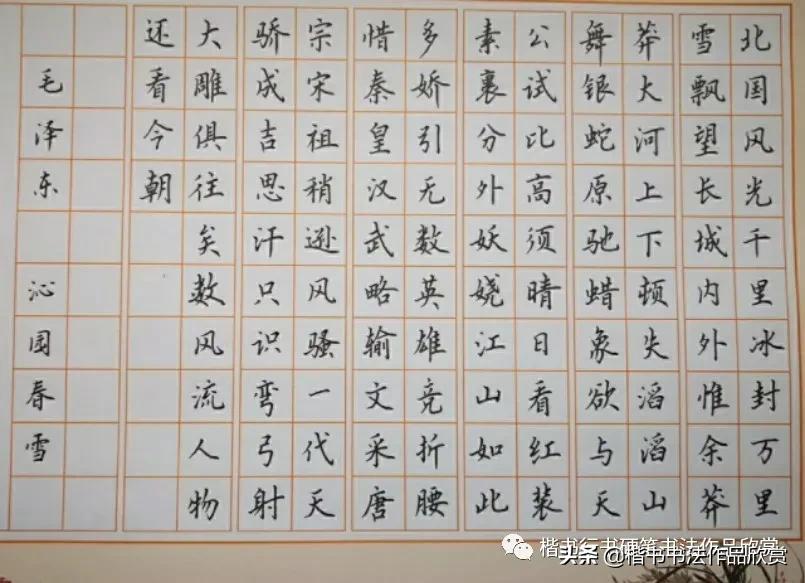 北国风光千里冰封万里
雪飘望长城内外惟余莽
莽大河上下顿失滔滔山
舞银蛇原驰蜡象欲与天
公试比高须晴日看红装
素裹分外妖娆江山如此
多娇引无数英雄竞折腰
惜秦皇汉武略输文采唐
宗宋祖稍逊风骚一代天
骄成吉思汗只识弯弓射
大雕俱往矣数风流人物
还看今朝
毛泽东 沁园春雪
楷书行书硬笔书法作品欣赏
头条 @楷书书法作品欣赏